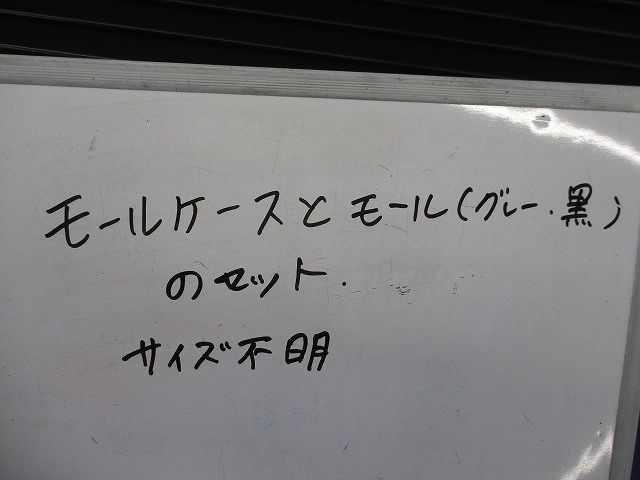 モールケースとモール(グレー.黒)
のセット.
サイズ不明